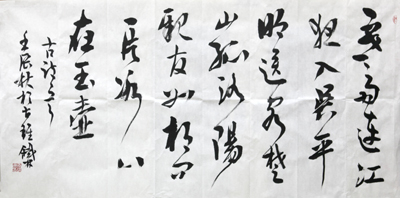 寒雨連江
夜入吳平
明送客楚
山孤洛陽
親友如相问
一片冰心
在玉壺
古詩一首
壬辰秋於古